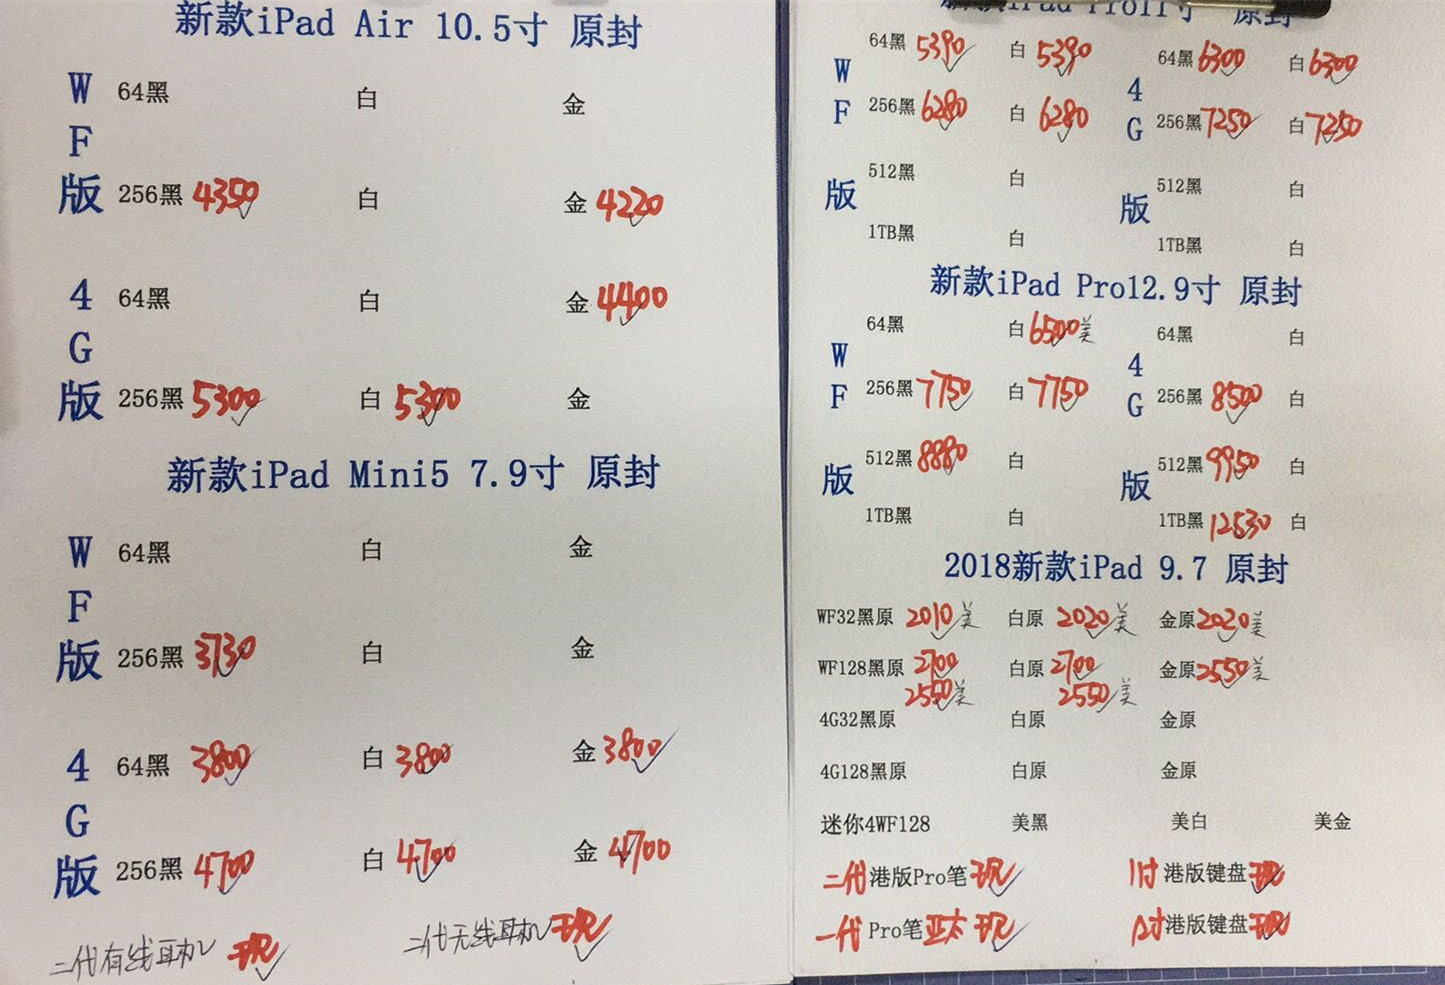 新款iPad Air 10.5寸 原封
WF版
64黑 白 金
256黑 4350 白 金 4220
4G版
64黑 白 金 4400
256黑 5300 白 5300 金
新款iPad Mini5 7.9寸 原封
WF版
64黑 白 金
256黑 3730 白 金
4G版
64黑 3800 白 3800 金 3800
256黑 4700 白 4700 金 4700
二代有线耳机 现 二代无线耳机 现
新款iPad Pro11寸 原封
WF版 4G版
64黑 5390 白 5390 64黑 6300 白 6300
256黑 6280 白 6280 256黑 7250 白 7250
512黑 白 512黑 白
1TB黑 白 1TB黑 白
新款iPad Pro12.9寸 原封
WF版 4G版
64黑 白 6500美 64黑 白
256黑 7750 白 7750 256黑 8500 白
512黑 8880 白 512黑 9950 白
1TB黑 白 1TB黑 12530 白
2018新款iPad 9.7 原封
WF32黑原 2010美 白原 2020美 金原 2020美
WF128黑原 2700 白原 2700 金原 2550美
2550美 2550美
4G32黑原 白原 金原
4G128黑原 白原 金原
迷你4WF128 美黑 美白 美金
二代 港版Pro笔 现 11寸 港版键盘 现
一代 Pro笔 亚太 现 12寸 港版键盘 现